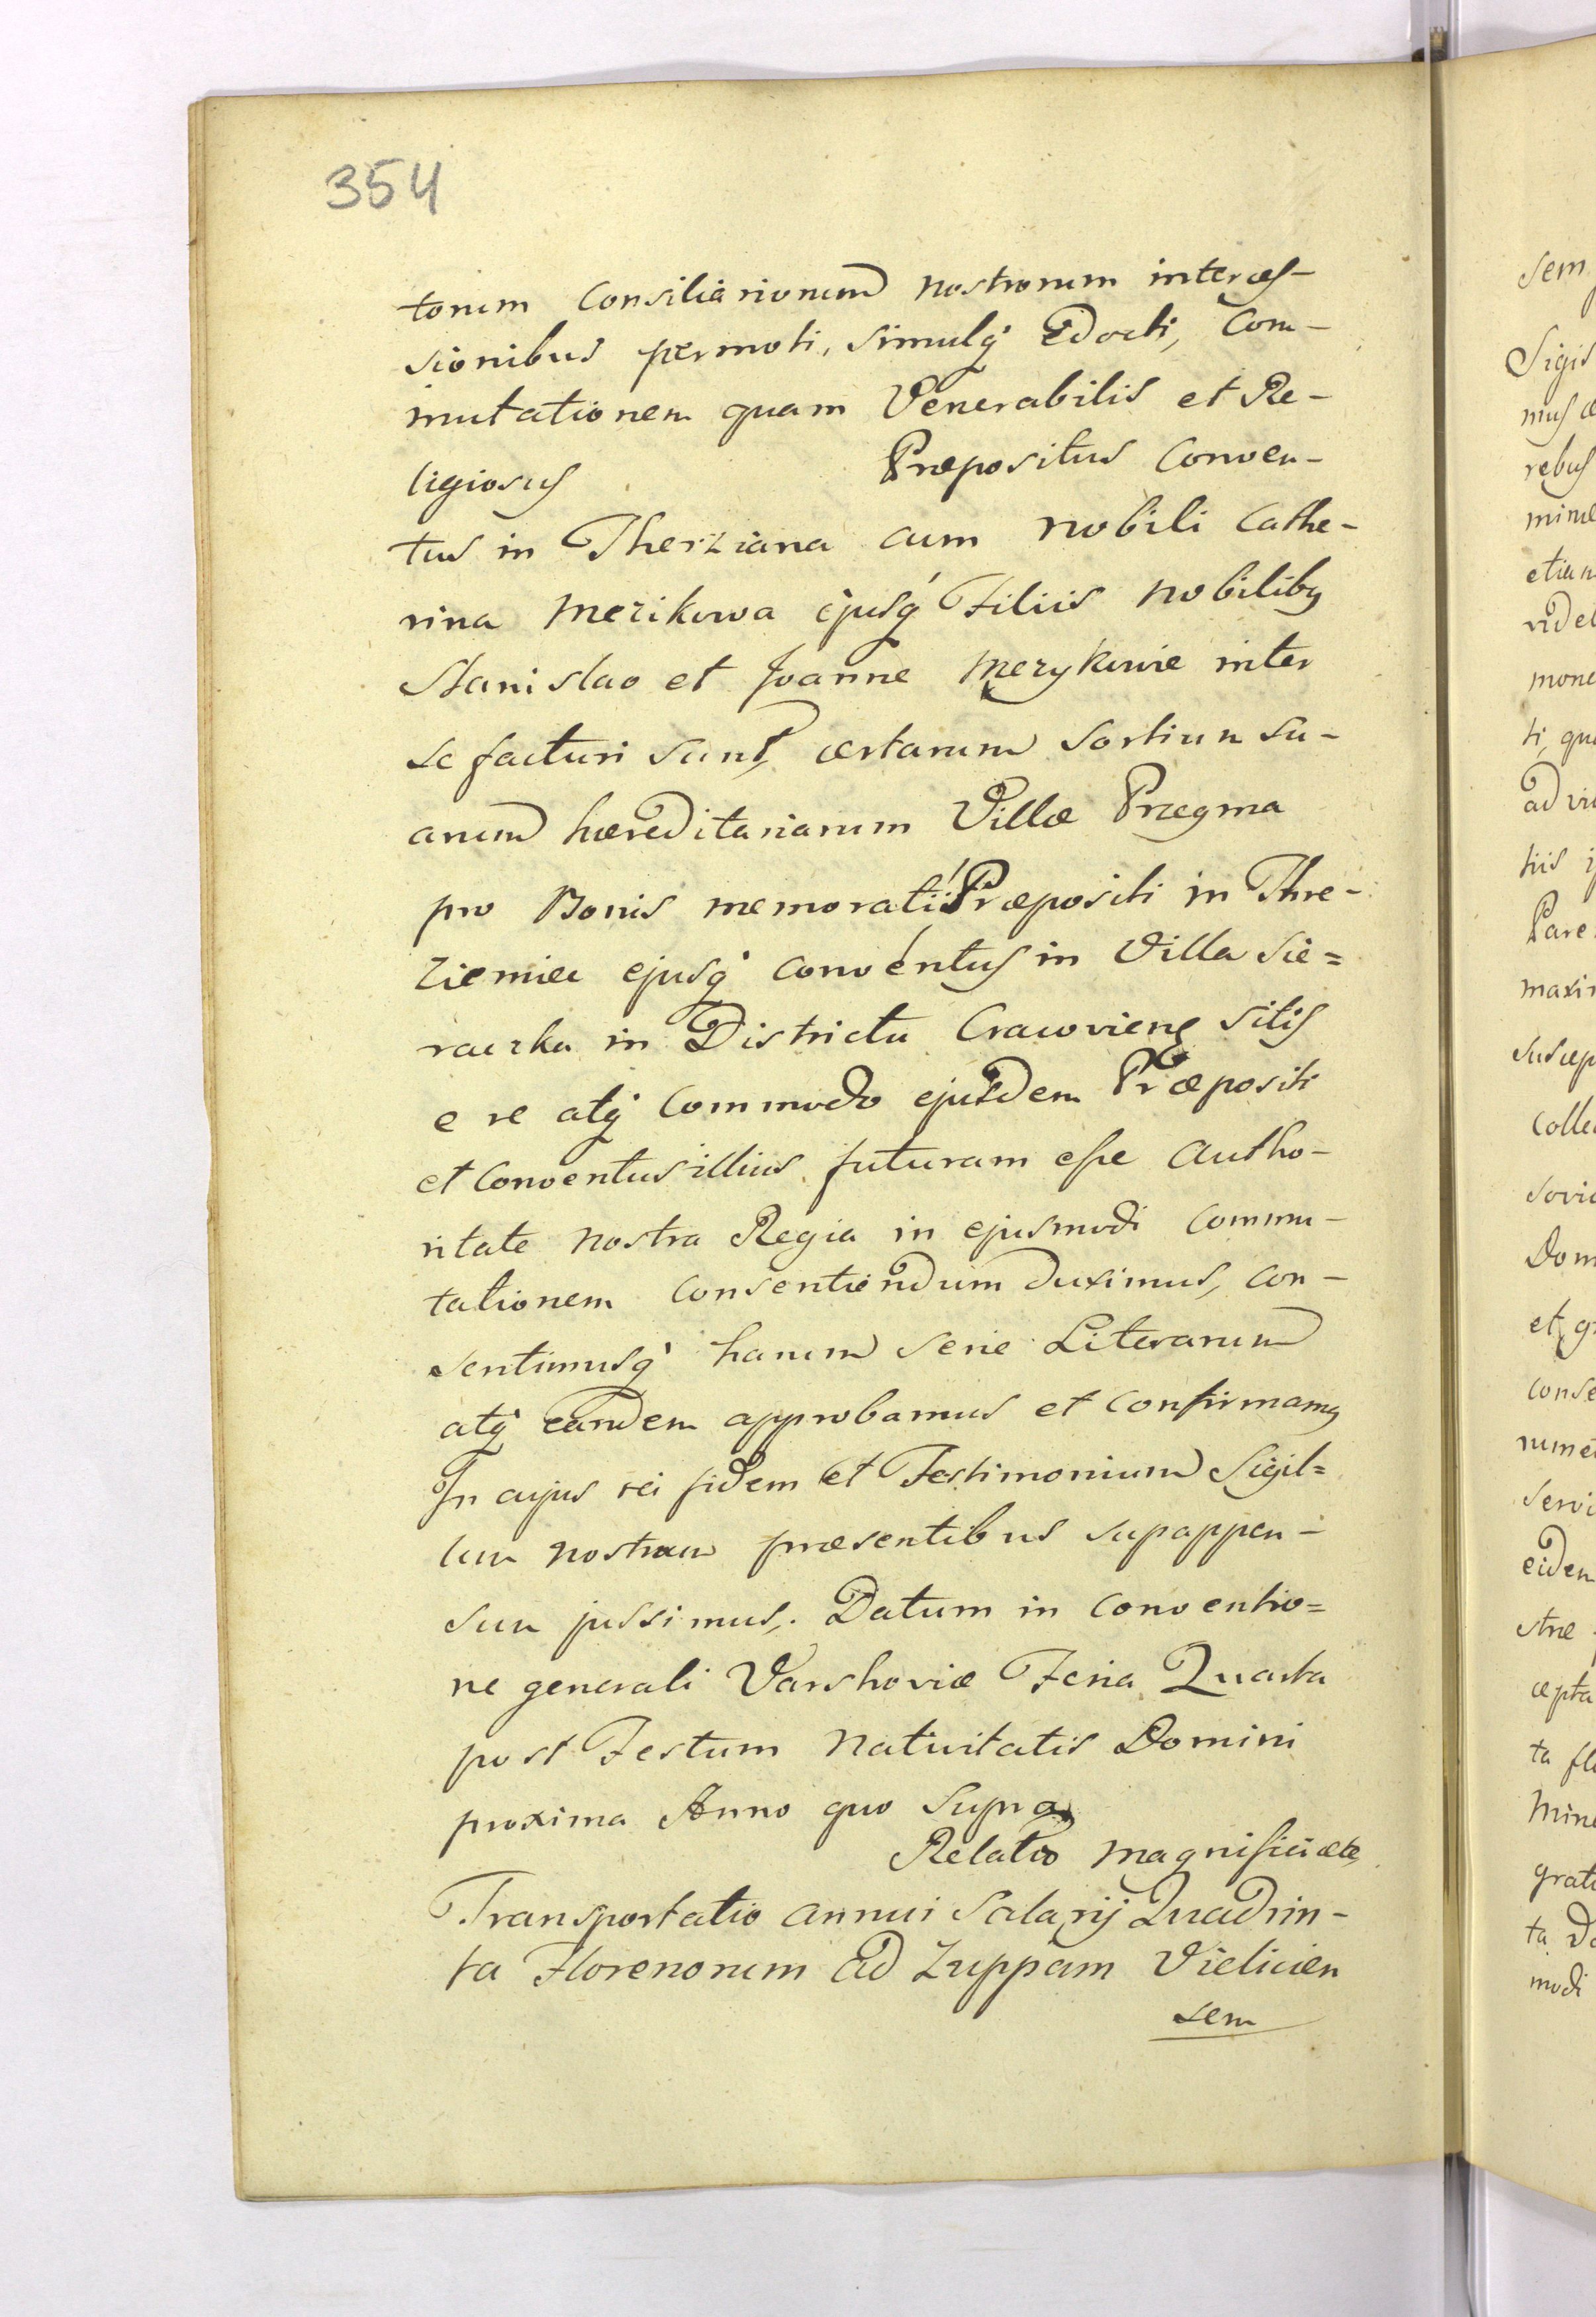 354
torum Consiliariorum nostrorum interces-
sionibus permoti, simulq̃ Edocti, Com-
mutationem quam Venerabilis et Re-
ligiosus Præpositus Conven-
tus in Therziana cum nobili Cathe-
rina Merikowa ejusq̃ Filiis nobilibus
Stanislao et Joanne Merykowie inter
se facturi sunt, certarum Sortium su-
arum hæreditariarum Villæ Przegma
pro Bonis memorati Præpositi in Thre-
ziemiec ejusq̃ Conventus in Villa Sie=
raczka in Districtu Cracoviens sitis
e re atq̃ Commodo ejusdem Præpositi
et Conventus illius futuram esse Autho-
ritate nostra Regia in ejusmodi Commu-
tationem Consentiendum duximus, Con-
sentimusq̃ harum serie Literarum
atq̃ eandem approbamus et Confirmamus
In cujus rei fidem et Testimonium Sigil=
lum nostrum præsentibus supappen-
sum jussimus. Datum in Conventio=
ne generali Varshoviæ Feria Quarta
post Festum Nativitatis Domini
proxima Anno quo Supra
Relatio Magnifici etc
Transportatio annui Salarij Quadrin-
ta Florenorum ad Zuppam Vielicien
sem
sem
Sigis
rebus
etiam
videl
mone
ti, qu
Pare
maxi
Colle
Dom
et g
conse
servi
eidem
ta fl
Mine
modi